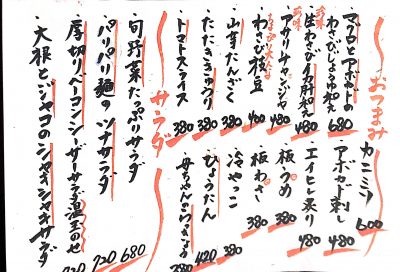 おつまみ
マグロとアボカドの
わさびしょうゆ和え 680
生わび イカ肝和え 480
アサリ
480
わさび枝豆 400
山芋たんざく 380
たたききゅうり 380
トマトスライス 380
カニミソ 600
アボカド刺し 480
エイヒレ炙り 480
板うめ 380
板わさ 380
冷やっこ 380
ひょうたん 420
母ちゃんの
380
サラダ
旬野菜たっぷりサラダ 680
パリパリ麺のツナサラダ 720
厚切りベーコンシーザーサラダ温玉のせ 720
大根とジャコのシャキシャキサラダ